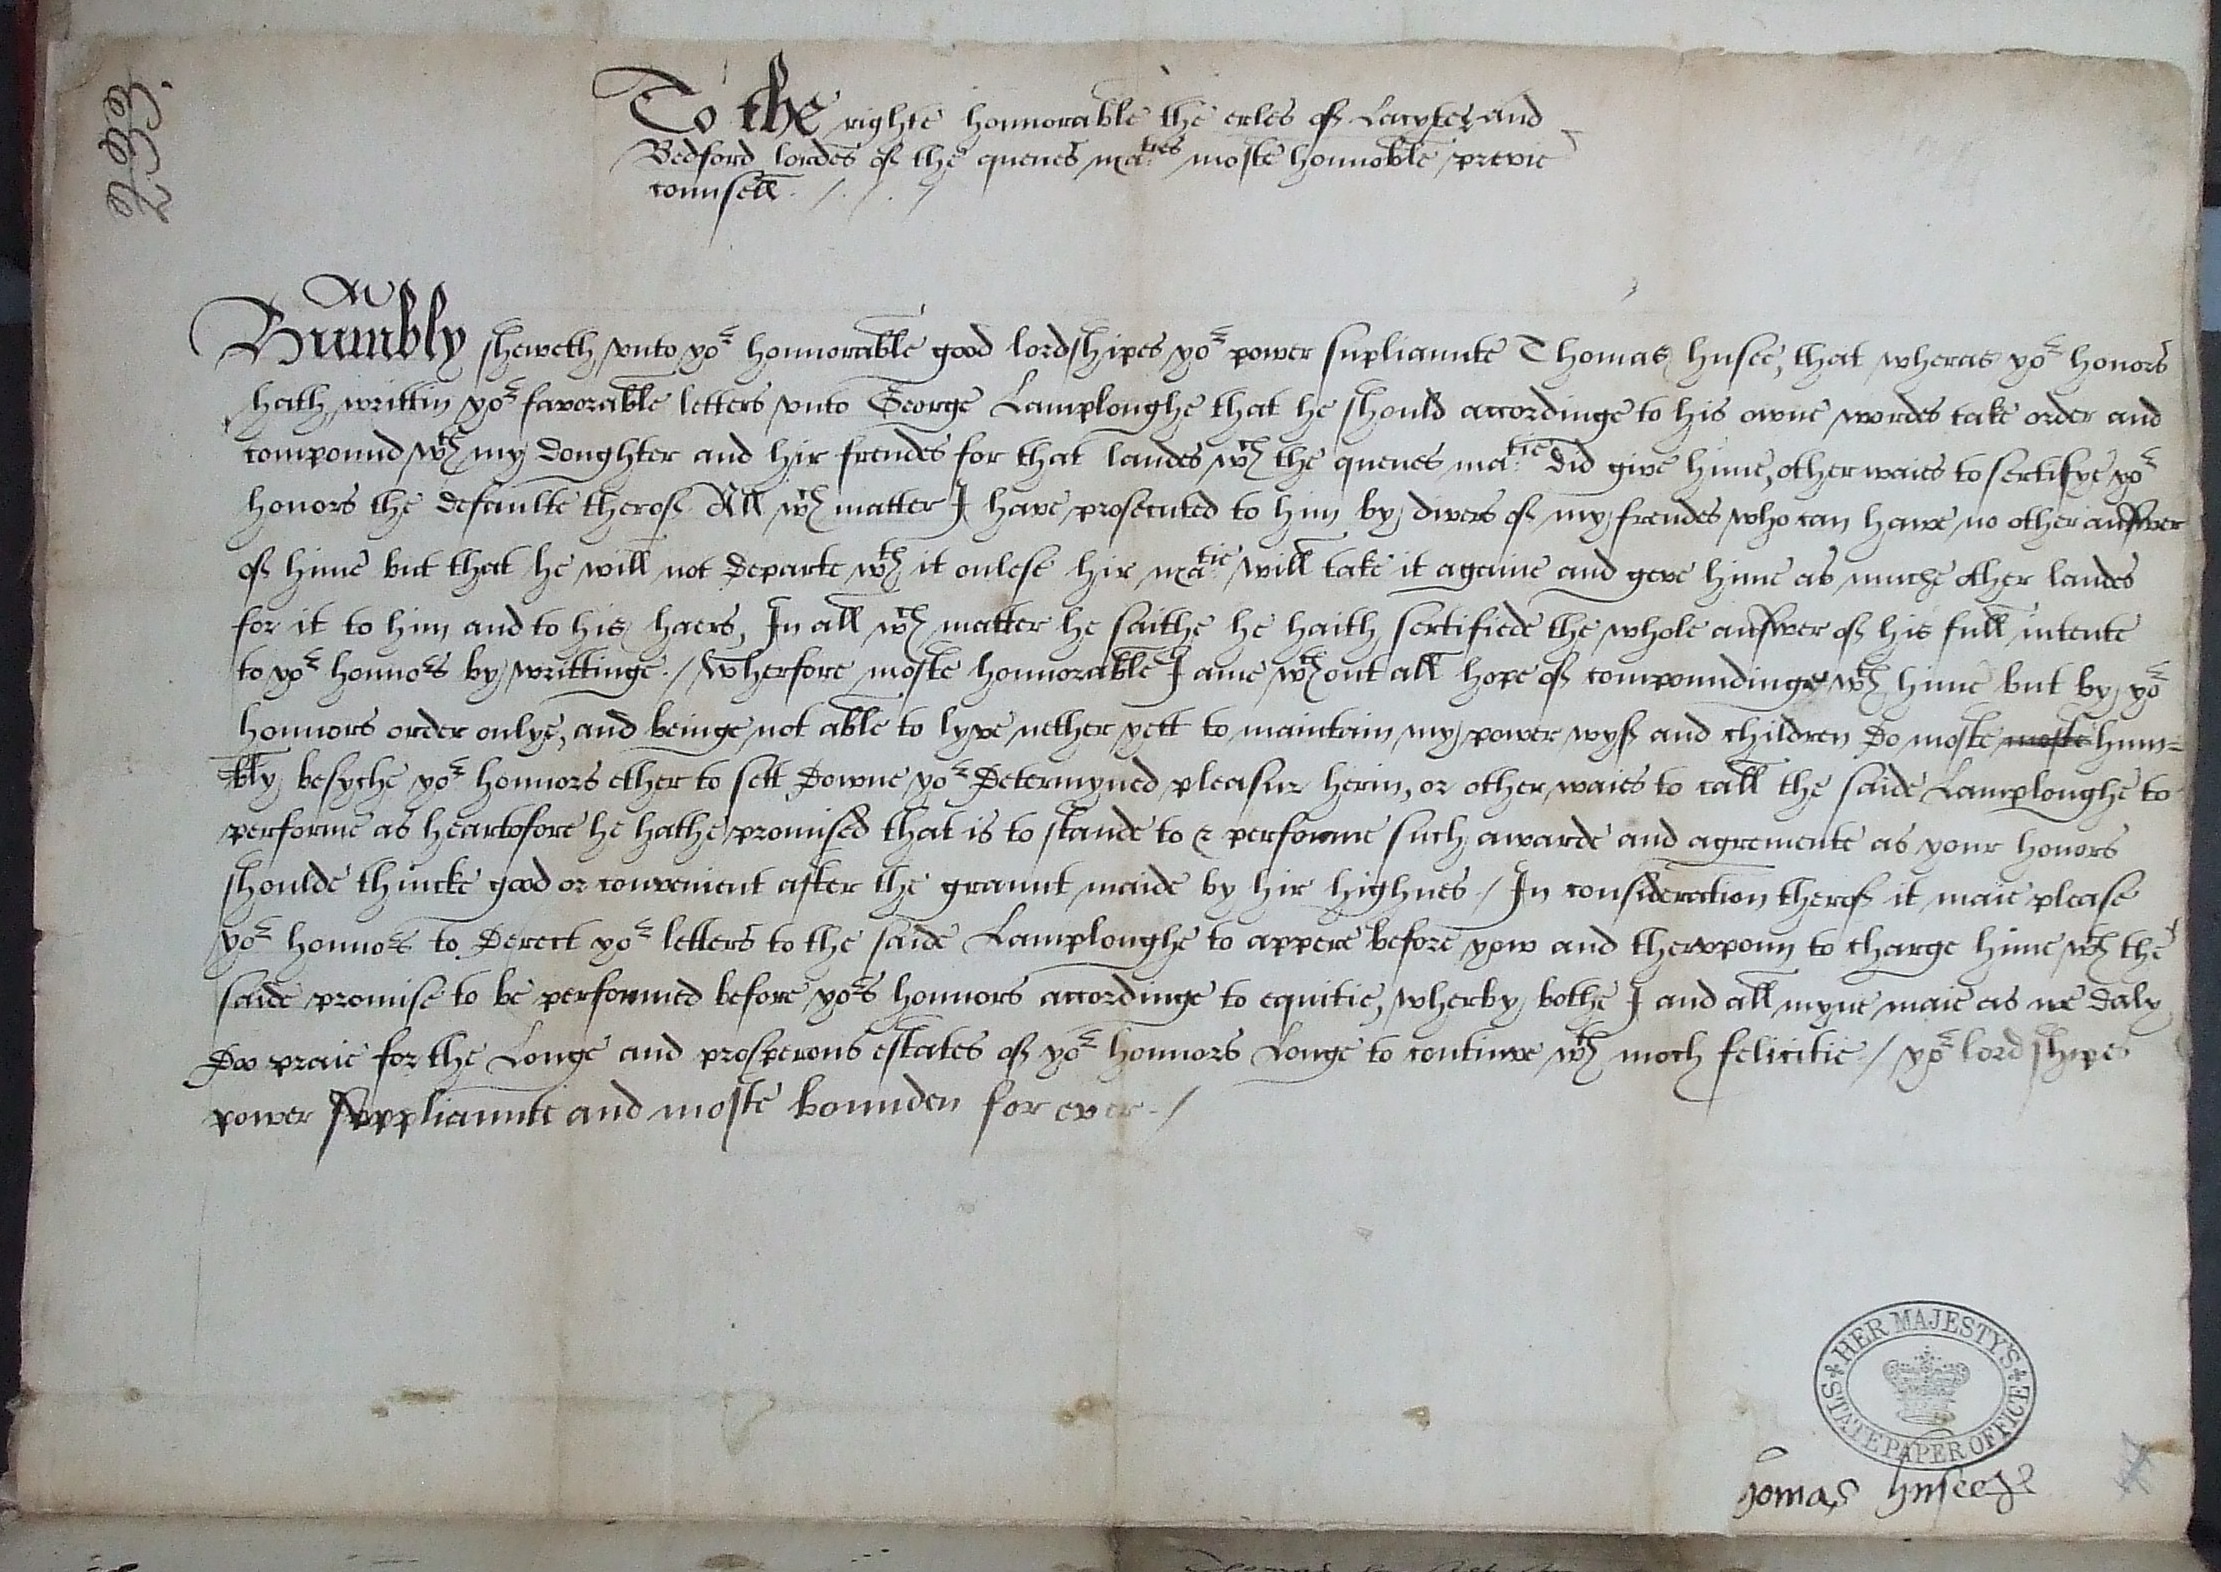 To the righte honnorable the erles of Lecyster and
Bedford lordes of the quenes ma.ties moste honnoble previe
counsell . / . / . /
Humbly sheweth vnto yor honnorable good lordshipes yor power supliannte Thomas husee, that wheras yor honors
hath writtin yor favorable letters vnto George Lamploughe that he should accordinge to his owne wordes take order and
compound wth my doughter and hir frendes for that landes wch the quenes ma.tie did give hime, other waies to sertifye yor
honors the defaulte therof. All wch matter I have prosecuted to him by divers of my frendes who can have no other answer
of hime but that he will not departe wth it onlese hir ma.tie will take it againe and geve hime as muche other landes
for it to him and to his haers, In all wch matter he saithe he haith sertifiede the whole answer of his full intente
to yor honnors by writtinge. / Wherfore moste honnorable I ame wthout all hope of compoundinge wth hime but by yor
honnors order onlye, and beinge not able to lyve nether yett to maintain my power wyf and children do moste moste hum=
bly besyche yor honnors ether to sett downe yor determyned pleasur herin, or other waies to call the saide Lamploughe to
performe as heartofore he hathe promised that is to stande to & performe such awarde and agremente as your honors
shoulde thincke good or convenient after the graunt maide by hir highnes. / In consideration therof it maie please
yor honnors to derect yor letters to the saide Lamploughe to appere before yow and thervpoun to charge hime wth the
saide promise to be performed before yors honnors accordinge to equitie, wherby bothe I and all myne maie as we daly
doo praie for the Longe and prosperous estates of yor honnors Longe to continve wth moch felicitie. / yor lordshipes
power svppliannte and moste bounden for ever. /
HER MAJESTY'S
STATE PAPER OFFICE
Thomas husee